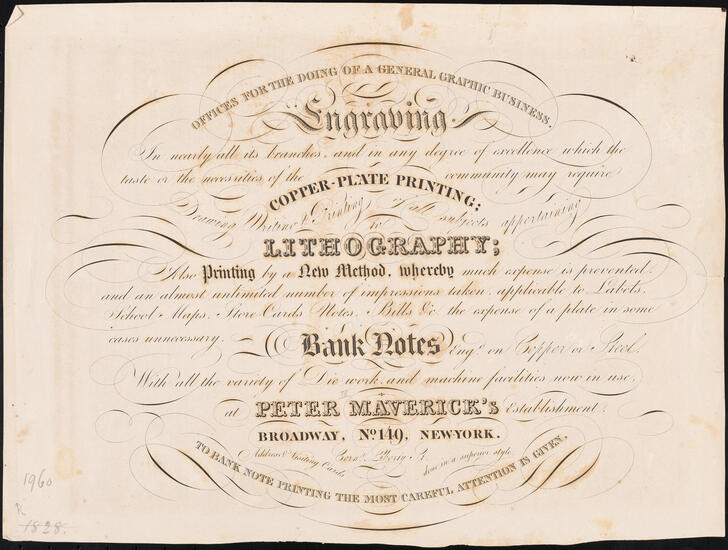 OFFICES FOR THE DOING OF A GENERAL GRAPHIC BUSINESS.
Engraving.
In nearly all its branches, and in any degree of excellence which the
taste or the necessities of the community may require
COPPER-PLATE PRINTING;
Drawing Writing & Printing of all subjects appertaining
to
LITHOGRAPHY;
Also Printing by a New Method, whereby much expense is prevented,
and an almost unlimited number of impressions taken, applicable to Labels,
School-Maps, Store-Cards Notes, Bills &c the expense of a plate in some
cases unnecessary.
Bank Notes Engd. on Copper or Steel.
With all the variety of Die work, and machine facilities now in use,
at PETER MAVERICK's Establishment,
BROADWAY, No 149, NEW-YORK.
Address & Visiting Cards Cornr. Liberty St. done in a superior style
TO BANK NOTE PRINTING THE MOST CAREFUL ATTENTION IS GIVEN.
1960
R
1828.